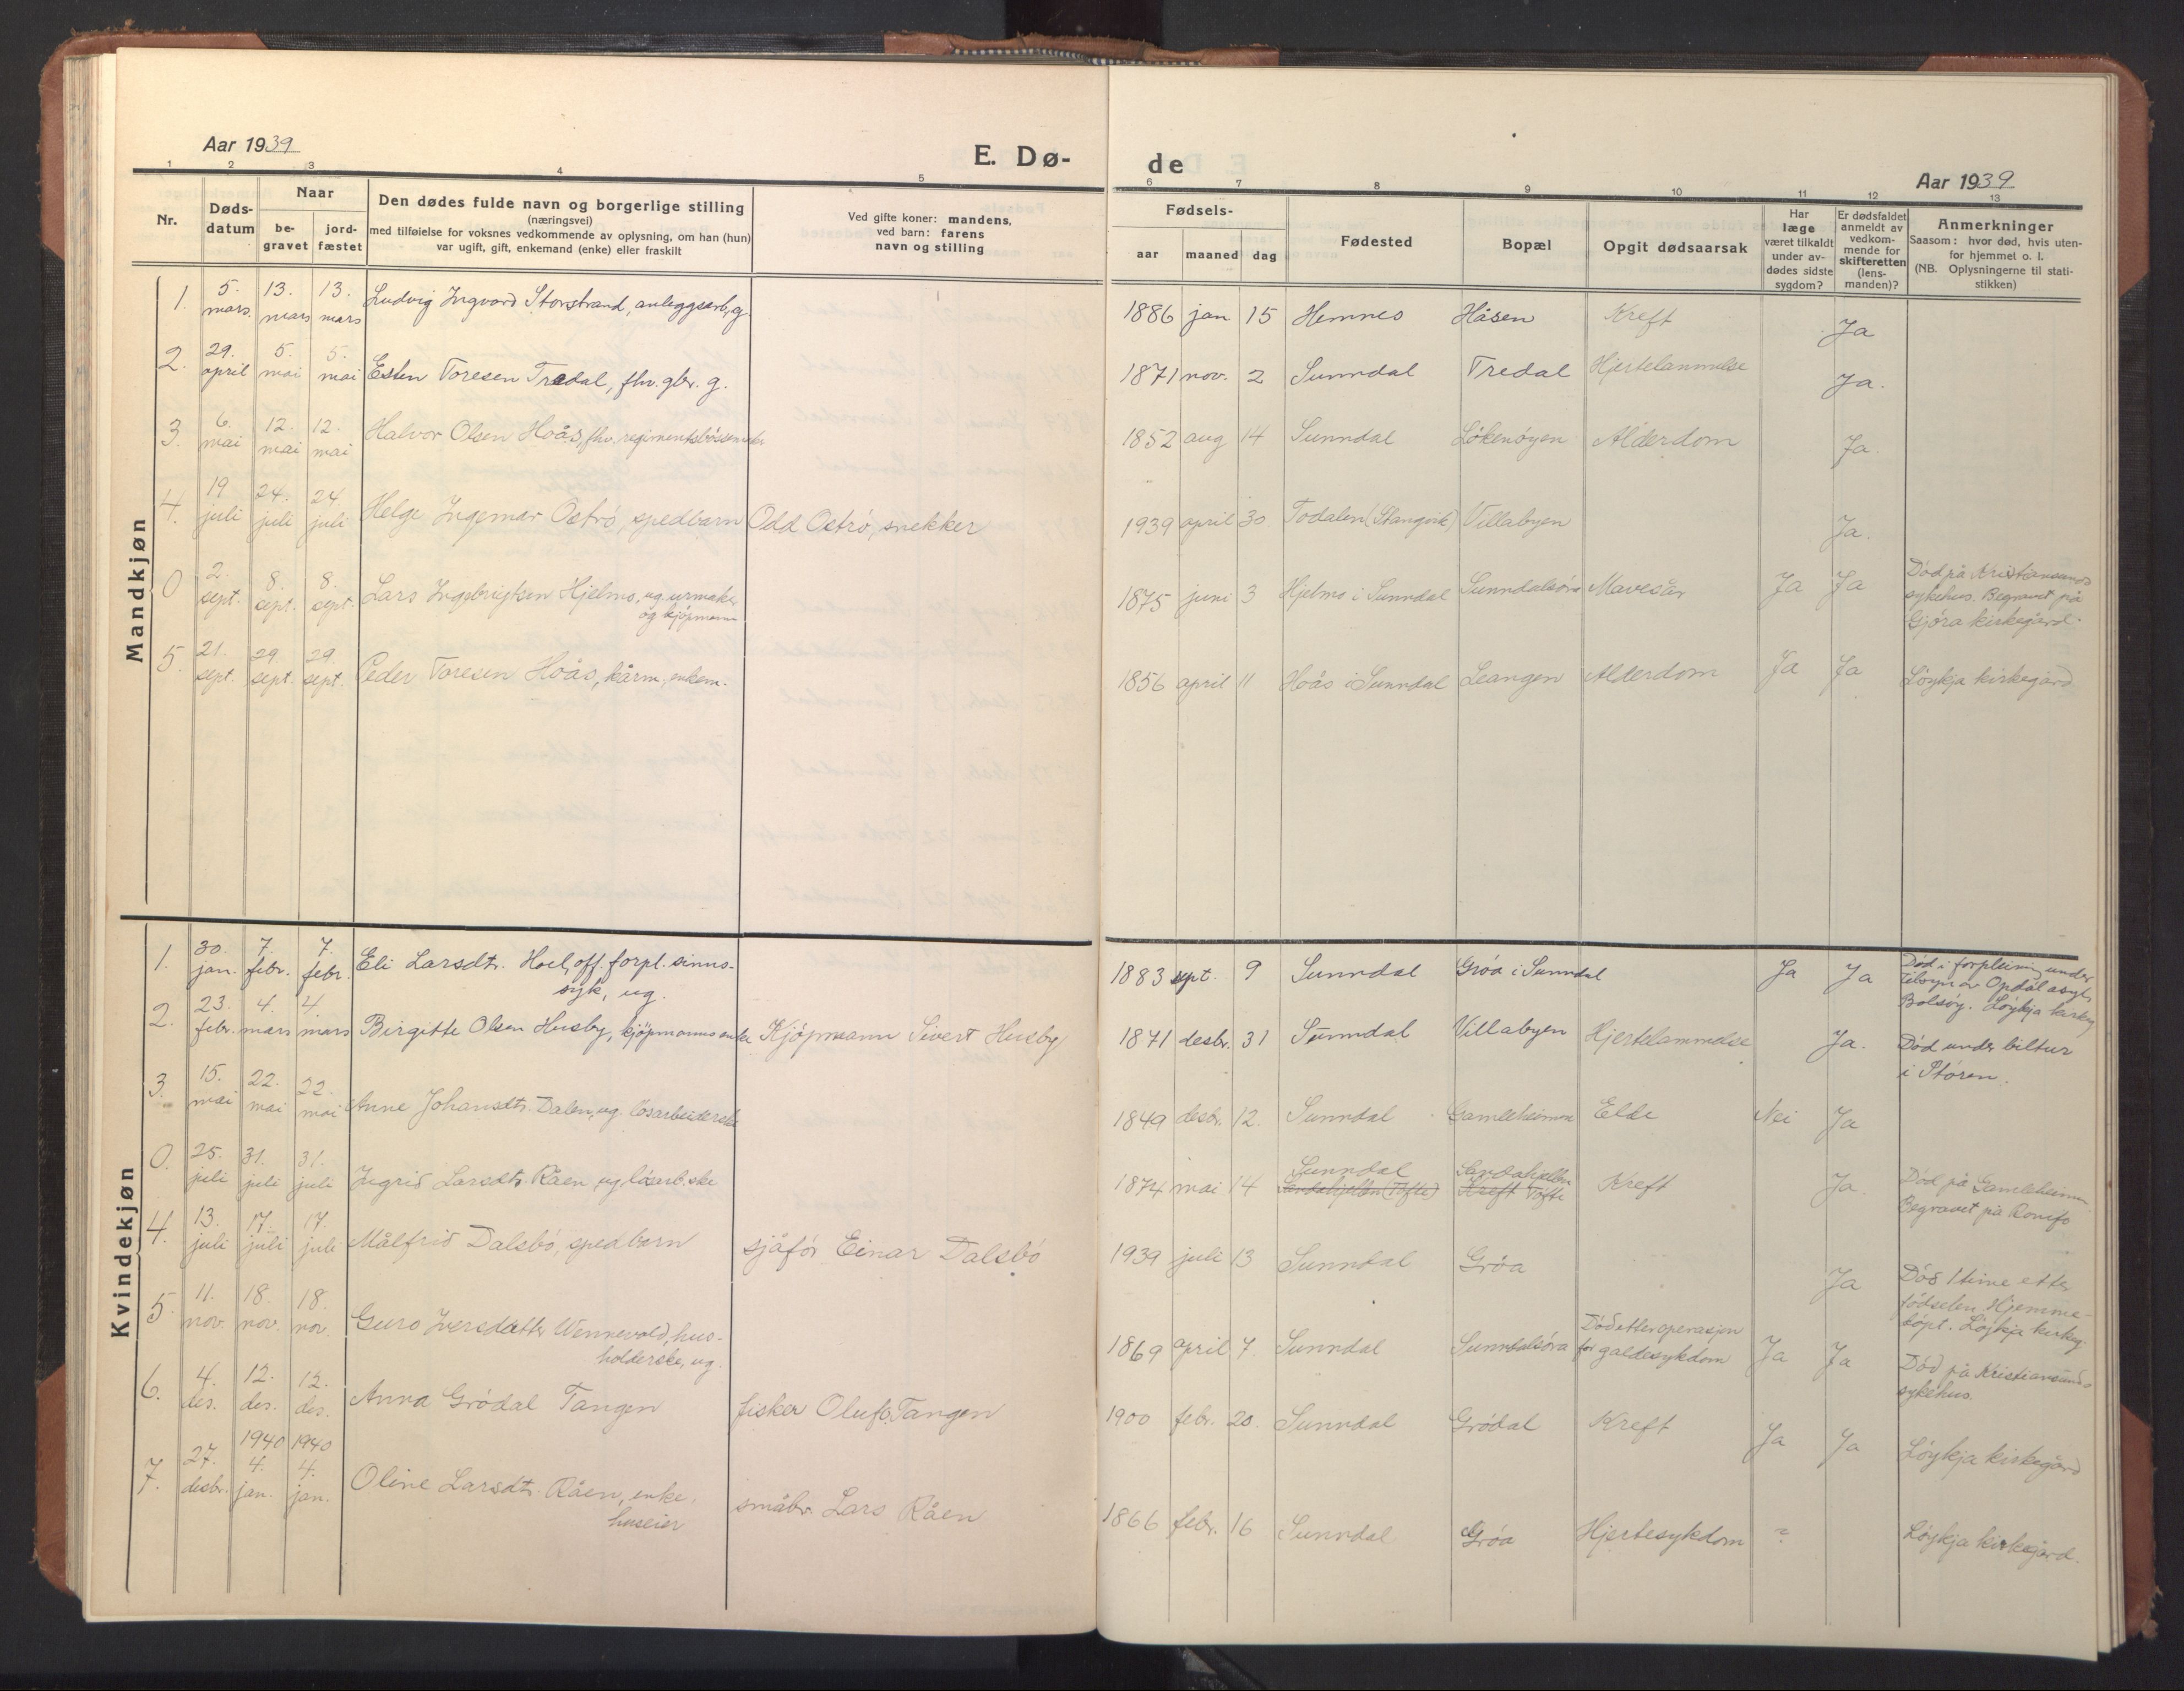 Aar 1939
E. Dø-
de
Aar 1939
1 2 3 4 5 6 7 8 9 10 11 12 13
Nr.
Døds-
datum
Naar
be-
gravet
jord-
fæstet
Den dødes fulde navn og borgerlige stilling
(næringsvei)
med tilføielse for voksnes vedkommende av oplysning, om han (hun)
var ugift, gift, enkemand (enke) eller fraskilt
Ved gifte koner: mandens,
ved barn: farens
navn og stilling
Fødsels-
aar maaned dag
Fødested
Bopæl
Opgit dødsaarsak
Har
læge
været tilkaldt
under av-
dødes sidste
sygdom?
Er dødsfaldet
anmeldt av
vedkom-
mende for
skifteretten
(lens-
manden)?
Anmerkninger
Saasom: hvor død, hvis uten-
for hjemmet o. l.
(NB. Oplysningerne til stati-
stikken)
Mandkjøn
1. 5. mars. 13. mars 13. mars Ludvig Ingvard Storstrand, anleggsarb., g. 1886 jan. 15 Hemnes Håsen Kreft Ja
2. 29. april 5. mai 5. mai Esten Toresen Tredal, fhv. gbr. g. 1871 nov. 2 Sunndal Tredal Hjertelammelse Ja.
3. 6. mai 12. mai 12. mai Halvor Olsen Hoås, fhv. regimentsbössemaker 1852 aug 14 Sunndal Lökenöyen Alderdom Ja.
4. 19 juli 24. juli 24. juli Helge Ingemar Oströ, spedbarn Odd Oströ, snekker 1939 april 30. Todalen (Stangvik) Villabyen Ja.
0 2. sept. 8. sept. 8. sept. Lars Ingebrigtsen Hjelmo, ug. urmaker
og kjöpmann 1875 juni 3 Hjelmo i Sunndal Sunndalsöra Mavesår Ja Ja Död på Kristiansunds
sykehus. Begravet på
Gjöra kirkegård.
5. 21. sept. 29. sept. 29. sept. Peder Toresen Hoås, kårm., enkem. 1856 april 11 Hoås i Sunndal Leangen Alderdom Ja Ja Löykja kirkegård
Kvindekjøn
1. 30. jan. 7. febr. 7. febr. Eli Larsdtr. Hoel, off. forpl. sinns-
syk, ug. 1883 sept. 9 Sunndal Gröa i Sunndal Ja Ja Död i forpleining under
tilsyn av Opdal asyl,
Bolsöy. Löykja kirkeg.
2. 23. febr. 4. mars 4. mars Birgitte Olsen Husby, kjöpmanns enke Kjöpmann Sivert Husby 1871 desbr. 31 Sunndal Villabyen Hjertelammelse Ja. Död under biltur
i Stören.
3. 15. mai 22. mai 22. mai Anne Johansdtr. Dalen, ug. lösarbeiderske 1849 desbr. 12. Sunndal Gamleheimen Elde Nei Ja
0. 25. juli 31. juli 31. juli Ingrid Larsdtr. Råen, ug lösarb.ske 1874 mai 14 Sunndal
Sandahjellen (Tofte) Sandahjellen
Kreft Tofte Kreft Ja. Död på Gamleheimen
Begravet på Romfo
4. 13. juli 17. juli 17. juli Målfrid Dalsbö, spedbarn sjåför Einar Dalsbö 1939 juli 13 Sunndal Gröa Ja Död 1 time etter
födselen. Hjemme-
döpt. Löykja kirkeg.
5. 11. nov. 18. nov. 18. nov. Guro Iversdatter Wennevold, hus-
holderske, ug. 1869 april 7. Sunndal Sunndalsöra Död etter operasjon
for galdesykdom Ja Ja Död på Kristiansunds
sykehus.
6. 4. des. 12. des. 12. des. Anna Grödal Tangen fisker Oluf Tangen 1900 febr. 20. Sunndal Grödal Kreft Ja Ja Löykja kirkegård
7. 27. desbr. 1940 4. jan. 1940 4. jan. Oline Larsdtr. Råen, enke,
huseier småbr. Lars Råen 1866 febr. 16 Sunndal Gröa Hjertesykdom ? Löykja kirkegård.